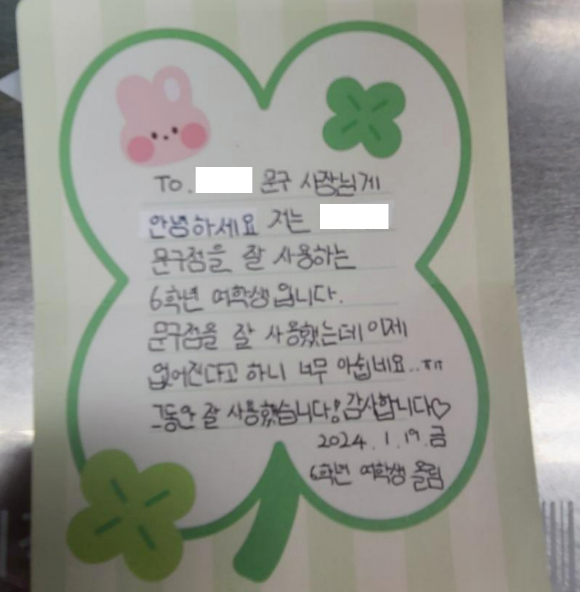 To. 문구 사장님게
안녕하세요 저는
문구점을 잘 사용하는
6학년 여학생입니다.
문구점을 잘 사용했는데 이제
없어진다고 하니 너무 아쉽네요..ㅠㅠ
그동안 잘 사용했습니다! 감사합니다♡
2024.1.19.금
6학년 여학생 올림